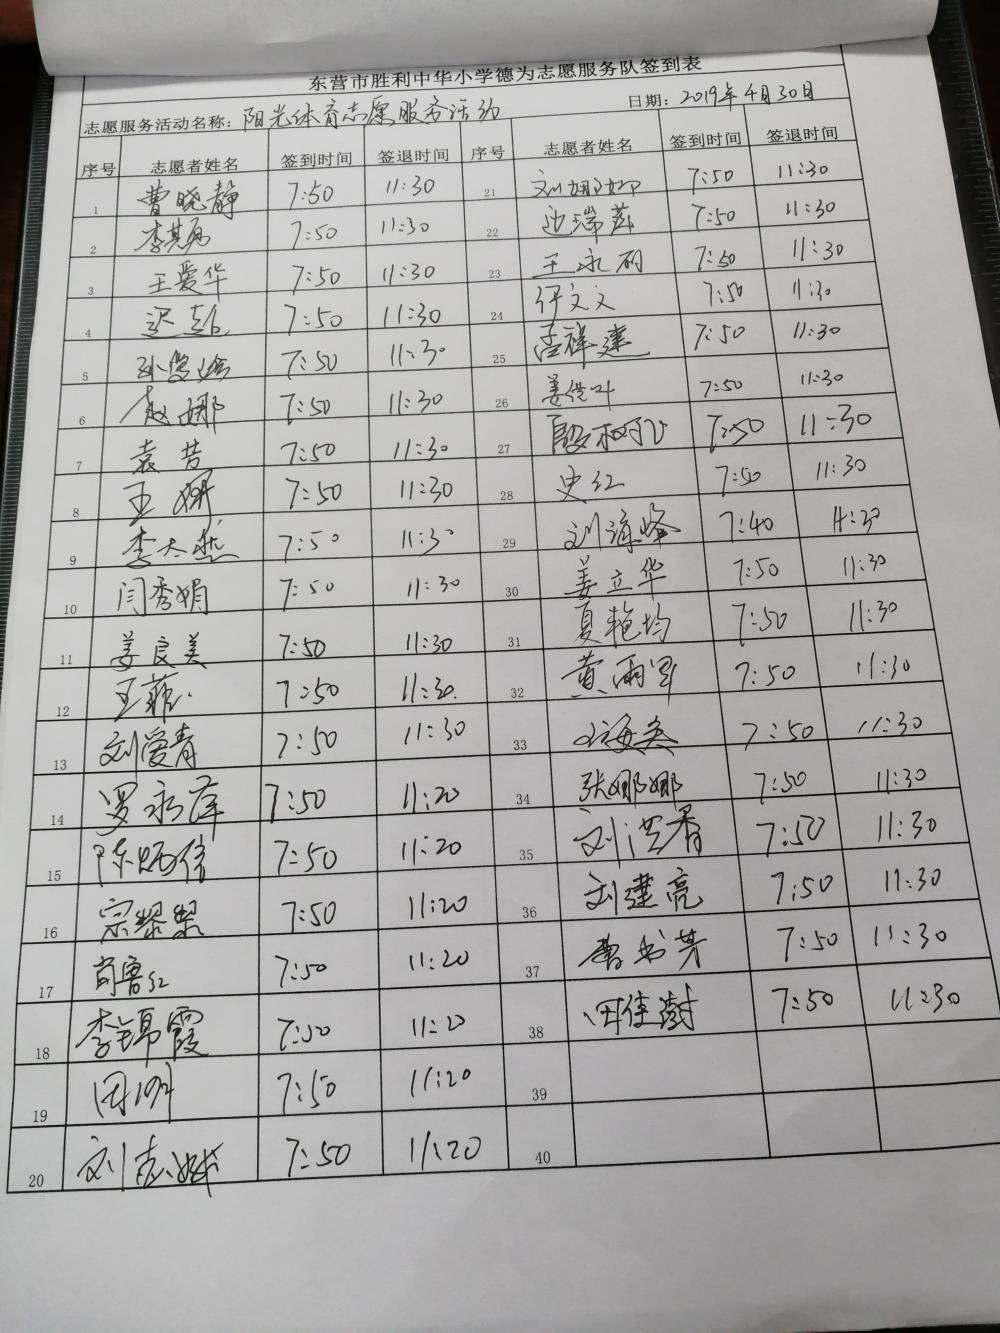 东营市胜利中华小学德为志愿服务队签到表
志愿服务活动名称：阳光体育志愿服务活动 日期：2019年4月30日
序号 志愿者姓名 签到时间 签退时间 序号 志愿者姓名 签到时间 签退时间
1 曹晓静 7:50 11:30 21 刘娜娜 7:50 11:30
2 李其勇 7:50 11:30 22 边瑞萍 7:50 11:30
3 王爱华 7:50 11:30 23 王永丽 7:50 11:30
4 7:50 11:30 24 任文文 7:50 11:30
5 7:50 11:30 25 孟祥建 7:50 11:30
6 赵娜 7:50 11:30 26 7:50 11:30
7 袁芳 7:50 11:30 27 7:50 11:30
8 王妍 7:50 11:30 28 史红 7:50 11:30
9 7:50 11:30 29 7:40 4:30
10 闫秀娟 7:50 11:30 30 姜立华 7:50 11:30
11 姜良美 7:50 11:30 31 夏艳均 7:50 11:30
12 王菲 7:50 11:30 32 7:50 11:30
13 刘爱青 7:50 11:30 33 7:50 11:30
14 罗永萍 7:50 11:20 34 张娜娜 7:50 11:30
15 7:50 11:20 35 刘洪香 7:50 11:30
16 7:50 11:20 36 刘建亮 7:50 11:30
17 肖鲁红 7:50 11:20 37 曹书芳 7:50 11:30
18 李锦霞 7:50 11:20 38 田佳澍 7:50 11:30
19 7:50 11:20 39
20 7:50 11:20 40